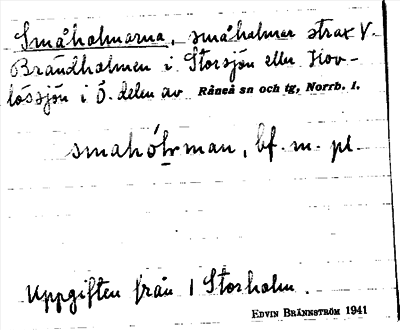 Småholmarna, småholmar strax V.
Brändholmen i Storsjön eller Hov-
lössjön i Ö. delen av Råneå sn och tg, Norrb. l.
smahólrman, bf. m. pl.
Uppgiften från 1 Storholm.
EDVIN BRÄNNSTRÖM 1941